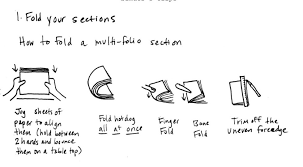 1. Fold your sections
How to fold a multi-folio section
Jog sheets of
paper to align
them (hold between
2 hands and bounce
them on a table top)
Fold hotdog
all at once
Finger
Fold
Bone
Fold
Trim off the
uneven foreedge